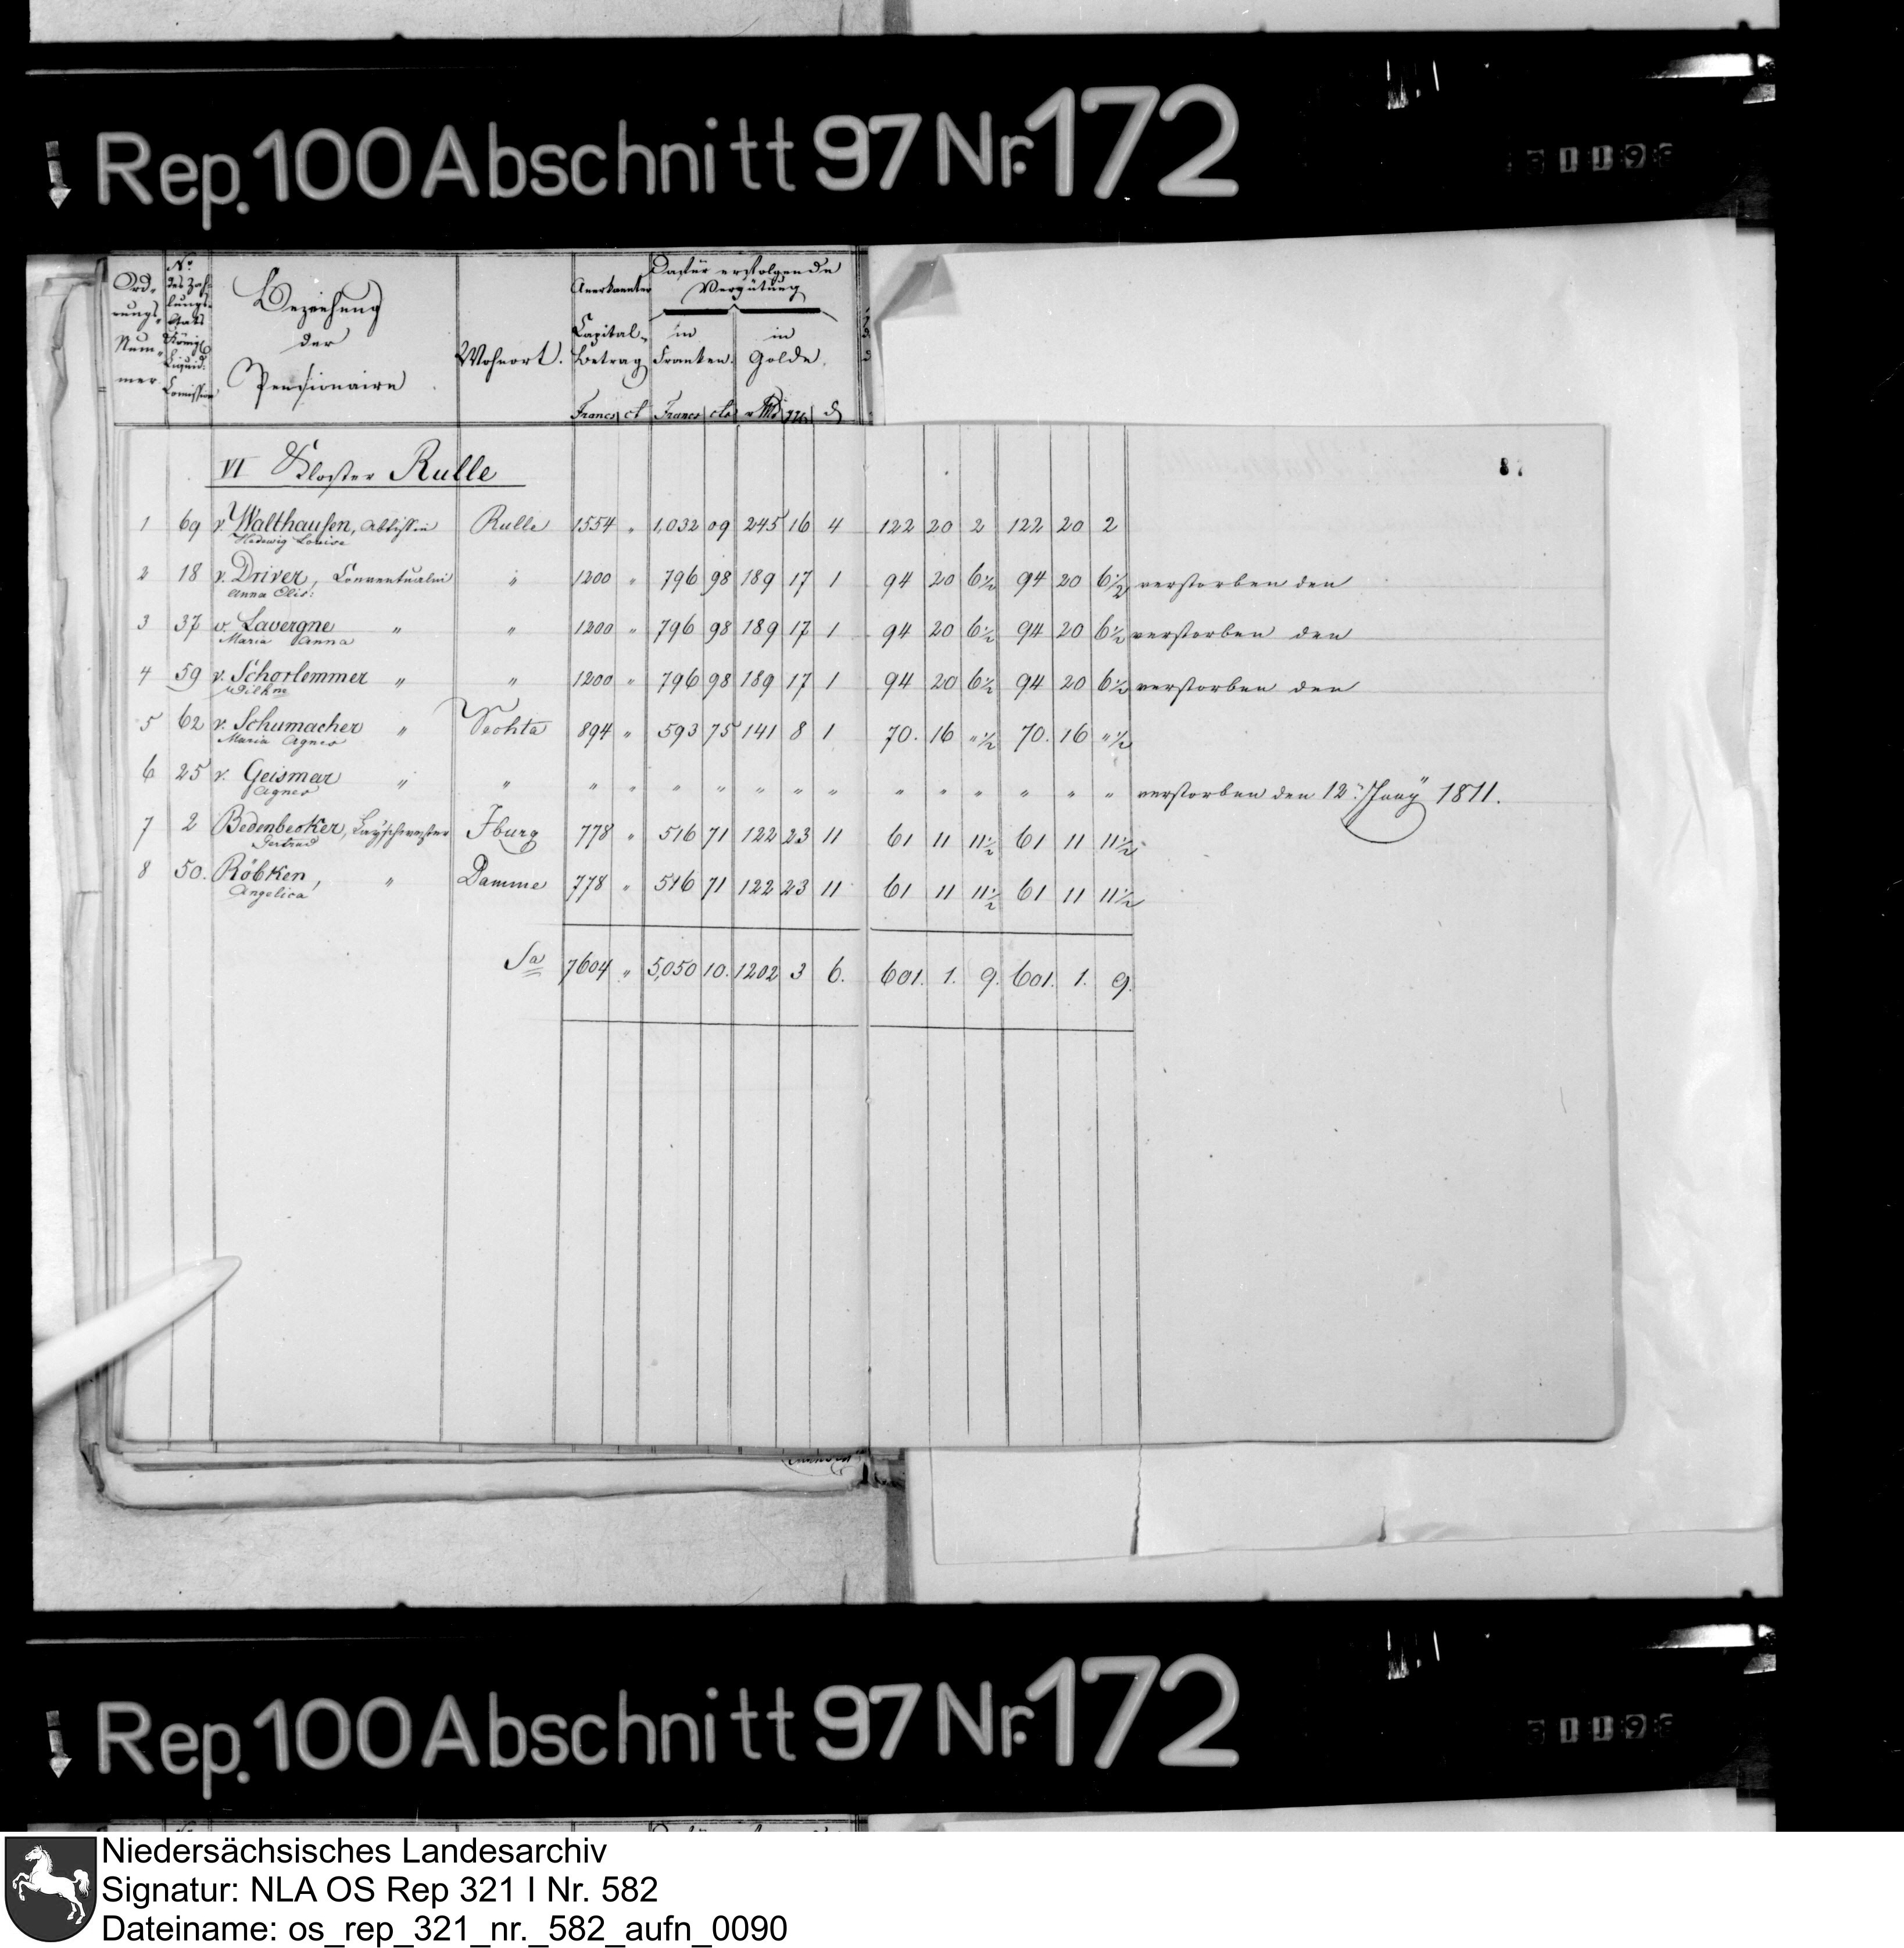 Rep. 100 Abschnitt 97 Nr. 172
Ord-
nungs-
Num-
mer
No
des Zah-
lungs-
Etats
Königl
Liquid:
Comission
Beziehung
der
Pensionaire
Wohnort.
Anerkannter
Capital-
Betrag
Francs ct
Dafür erfolgende
Vergütung
in
Franken.
Francs cts
in
Golde.
VI Kloster Rulle
1 69 v. Walthausen, Abtissin Rulle 1554 " 1,032 09 245 16 4 122 20 2 122 20 2
Hedewig Louise
2 18 v. Driver, Conventualin " 1200 " 796 98 189 17 1 94 20 6½ 94 20 6½ verstorben den
Anna Elis:
3 37 v. Lavergne " " 1200 " 796 98 189 17 1 94 20 6½ 94 20 6½ verstorben den
Maria Anna
4 59 v. Schorlemmer " " 1200 " 796 98 189 17 1 94 20 6½ 94 20 6½ verstorben den
Wilhne
5 62 v. Schumacher " Vechta 894 " 593 75 141 8 1 70. 16 "½ 70. 16 "½
Maria Agnes
6 25 v. Geismar " " " " " " " " " " " " " " " verstorben den 12. Juny 1811.
Agnes
7 2 Bedenbecker, Layschwester Iburg 778 " 516 71 122 23 11 61 11 11½ 61 11 11½
Gertrud
8 50. Röbken, " Damme 778 " 516 71 122 23 11 61 11 11½ 61 11 11½
Angelica
Sa 7604 " 5,050 10. 1202 3 6. 601. 1. 9. 601. 1. 9.
Rep. 100 Abschnitt 97 Nr. 172
Niedersächsisches Landesarchiv
Signatur: NLA OS Rep 321 I Nr. 582
Dateiname: os_rep_321_nr._582_aufn_0090